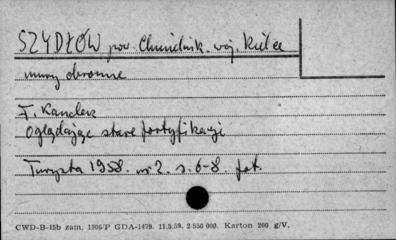 SZYDŁÓW pow. Chmielnik. woj. Kielce
mury obronne
F. Kandarz
Oglądając stare fortyfikacje
Turysta 1958. nr 2. s. 6-8. fot.
CWD-B-15b zam. 1106/P GDA-1479. 11.3.59. 2 550 000. Karton 200 g/V.